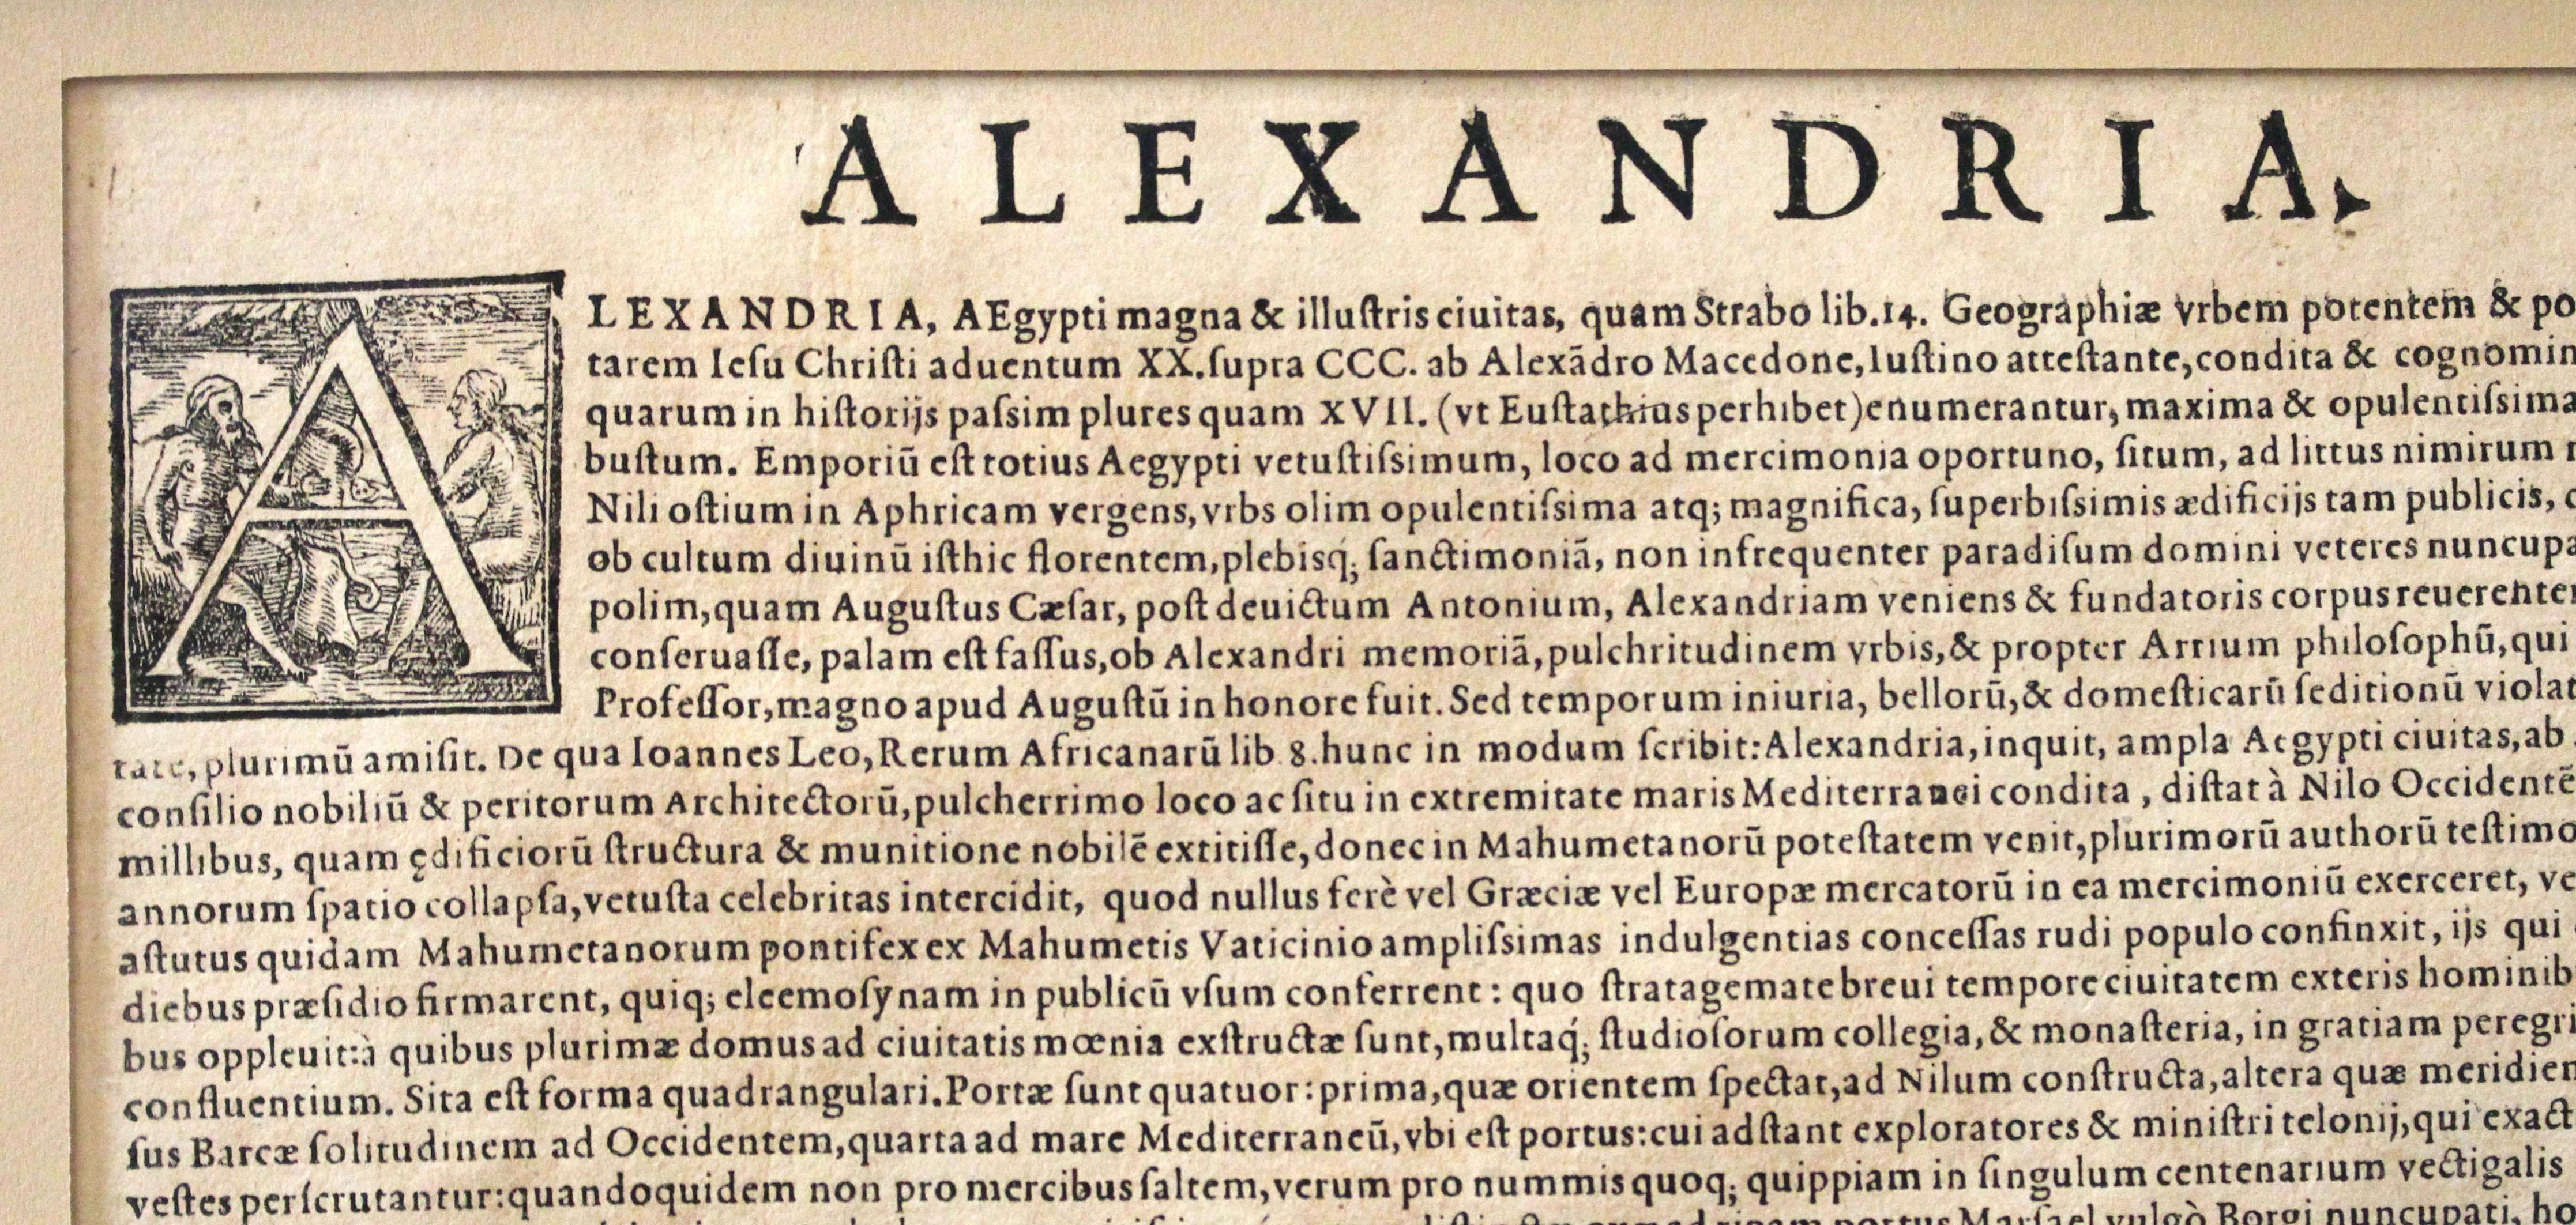 ALEXANDRIA,
ALEXANDRIA, AEgypti magna & illuſtris ciuitas, quam Strabo lib.14. Geographiæ vrbem potentem & po
tarem Ieſu Chriſti aduentum XX.ſupra CCC. ab Alexãdro Macedone, Iuſtino atteſtante, condita & cognomin
quarum in hiſtorijs paſsim plures quam XVII. (vt Euſtathius perhibet) enumerantur, maxima & opulentiſsima
buſtum. Emporiũ eſt totius Aegypti vetuſtiſsimum, loco ad mercimonia oportuno, ſitum, ad littus nimirum
Nili oſtium in Aphricam vergens, vrbs olim opulentiſsima atq; magnifica, ſuperbiſsimis ædificijs tam publicis,
ob cultum diuinũ iſthic florentem, plebisq́; ſanctimoniã, non infrequenter paradiſum domini veteres nuncupa
polim, quam Auguſtus Cæſar, poſt deuictum Antonium, Alexandriam veniens & fundatoris corpus reuerenter
conſeruaſſe, palam eſt faſſus, ob Alexandri memoriã, pulchritudinem vrbis, & propter Arrium philoſophũ, qui
Profeſſor, magno apud Auguſtũ in honore fuit. Sed temporum iniuria, bellorũ, & domeſticarũ ſeditionũ violat
tate, plurimũ amiſit. De qua Ioannes Leo, Rerum Africanarũ lib 8.hunc in modum ſcribit: Alexandria, inquit, ampla Aegypti ciuitas, ab
conſilio nobiliũ & peritorum Architectorũ, pulcherrimo loco ac ſitu in extremitate maris Mediterranei condita , diſtat à Nilo Occidentẽ
millibus, quam ędificiorũ ſtructura & munitione nobilẽ extitiſſe, donec in Mahumetanorũ poteſtatem venit, plurimorũ authorũ teſtimo
annorum ſpatio collapſa, vetuſta celebritas intercidit, quod nullus ferè vel Græciæ vel Europæ mercatorũ in ea mercimoniũ exerceret, ve
aſtutus quidam Mahumetanorum pontifex ex Mahumetis Vaticinio ampliſsimas indulgentias conceſſas rudi populo confinxit, ijs qui
diebus præſidio firmarent, quiq; eleemoſynam in publicũ vſum conferrent : quo ſtratagemate breui tempore ciuitatem exteris hominib
bus oppleuit: à quibus plurimæ domus ad ciuitatis mœnia exſtructæ ſunt, multaq́; ſtudioſorum collegia, & monaſteria, in gratiam peregri
confluentium. Sita eſt forma quadrangulari. Portæ ſunt quatuor: prima, quæ orientem ſpectat, ad Nilum conſtructa, altera quæ meridiem
ſus Barcæ ſolitudinem ad Occidentem, quarta ad mare Mediterraneũ, vbi eſt portus: cui adſtant exploratores & miniſtri telonij, qui exact
veſtes perſcrutantur: quandoquidem non pro mercibus ſaltem, verum pro nummis quoq; quippiam in ſingulum centenarium vectigalis
portus Marſael vulgò Borgi nuncupati, ho